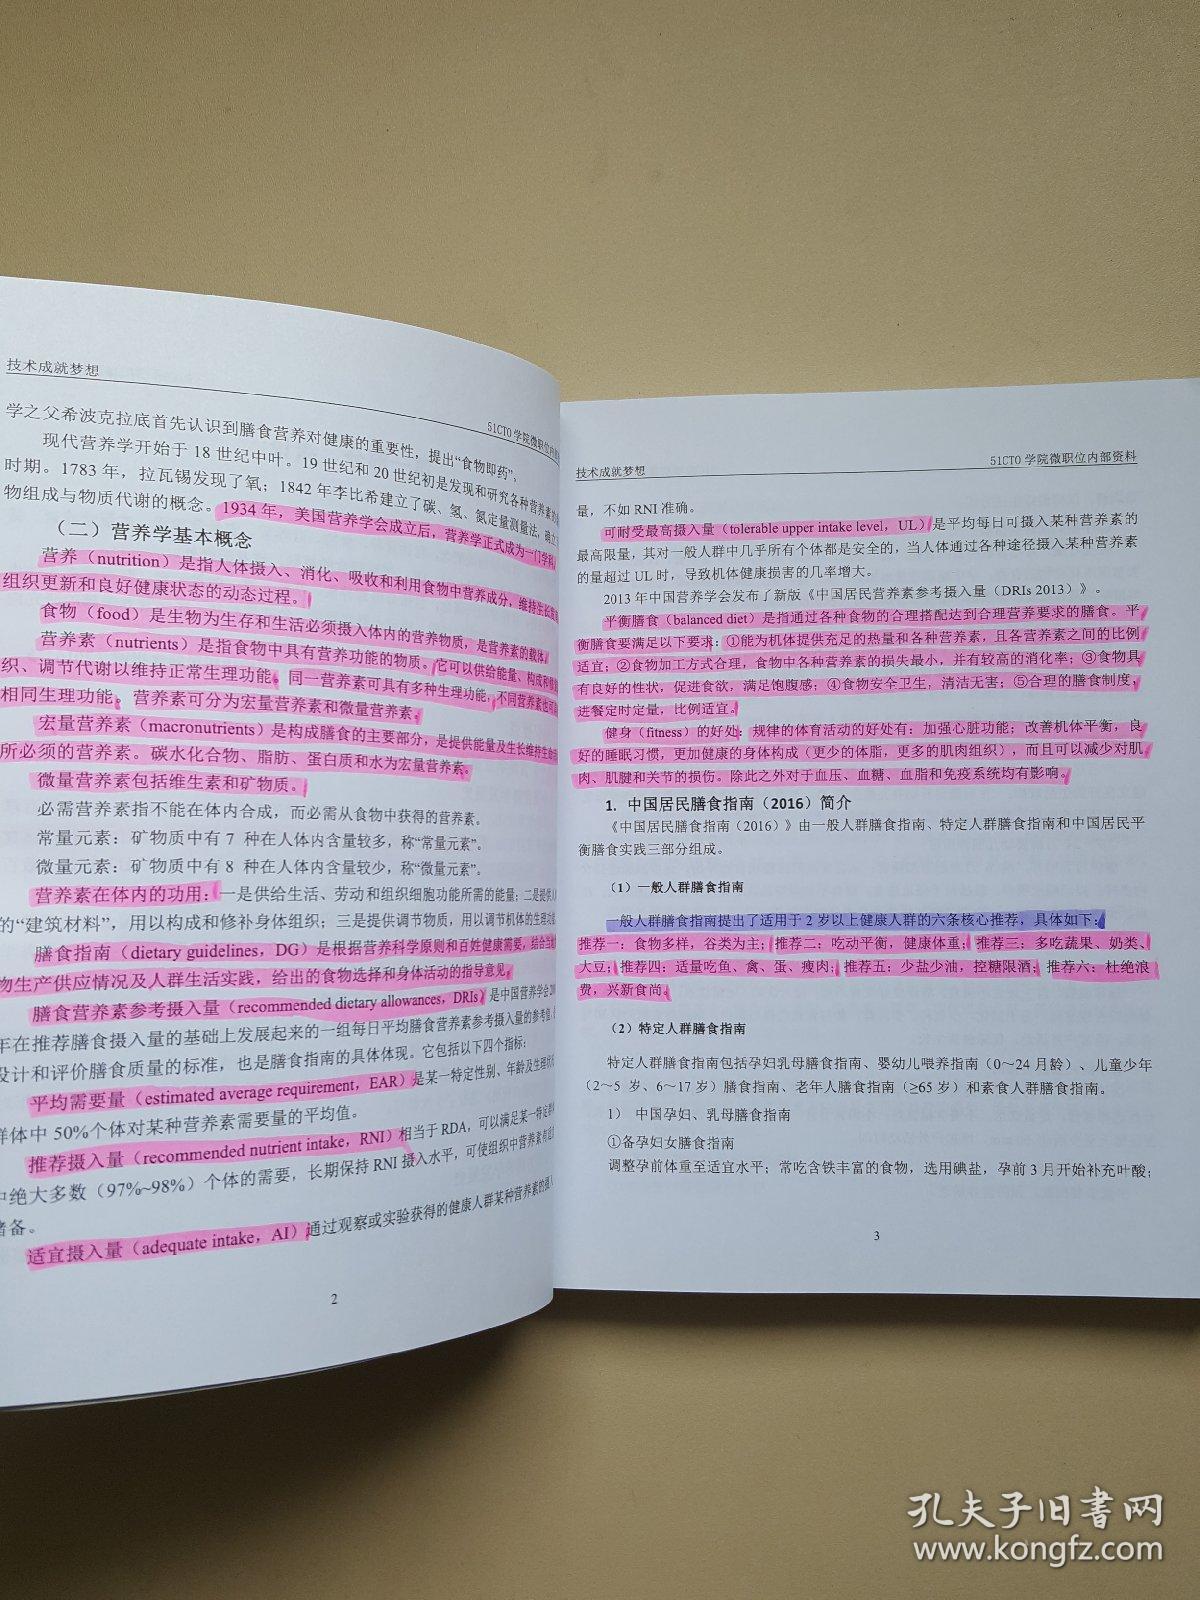 技术成就梦想
51CTO 学院微职位内
学之父希波克拉底首先认识到膳食营养对健康的重要性，提出“食物即药”，
现代营养学开始于 18 世纪中叶。19 世纪和 20 世纪初是发现和研究各种营养素的
时期。1783 年，拉瓦锡发现了氧；1842 年李比希建立了碳、氢、氮定量测量法，确立
物组成与物质代谢的概念。1934 年，美国营养学会成立后，营养学正式成为一门学科
（二）营养学基本概念
营养（nutrition）是指人体摄入、消化、吸收和利用食物中营养成分，维持生长
组织更新和良好健康状态的动态过程。
食物（food）是生物为生存和生活必须摄入体内的营养物质，是营养素的载体
营养素（nutrients）是指食物中具有营养功能的物质。它可以供给能量、构成
织、调节代谢以维持正常生理功能。同一营养素可具有多种生理功能，不同营养素也可
相同生理功能。营养素可分为宏量营养素和微量营养素。
宏量营养素（macronutrients）是构成膳食的主要部分，是提供能量及生长维持生命
所必须的营养素。碳水化合物、脂肪、蛋白质和水为宏量营养素。
微量营养素包括维生素和矿物质。
必需营养素指不能在体内合成，而必需从食物中获得的营养素。
常量元素：矿物质中有 7 种在人体内含量较多，称“常量元素”。
微量元素：矿物质中有 8 种在人体内含量较少，称“微量元素”。
营养素在体内的功用：一是供给生活、劳动和组织细胞功能所需的能量；二是提供
的“建筑材料”，用以构成和修补身体组织；三是提供调节物质，用以调节机体的生理功
膳食指南（dietary guidelines，DG）是根据营养科学原则和百姓健康需要，结合当
物生产供应情况及人群生活实践，给出的食物选择和身体活动的指导意见。
膳食营养素参考摄入量（recommended dietary allowances，DRIs）是中国营养学会
年在推荐膳食摄入量的基础上发展起来的一组每日平均膳食营养素参考摄入量的参考值，
设计和评价膳食质量的标准，也是膳食指南的具体体现。它包括以下四个指标：
平均需要量（estimated average requirement，EAR）是某一特定性别、年龄及生理状
群体中 50%个体对某种营养素需要量的平均值。
推荐摄入量（recommended nutrient intake，RNI）相当于 RDA，可以满足某一特定
中绝大多数（97%~98%）个体的需要，长期保持 RNI 摄入水平，可使组织中营养素有
储备。
适宜摄入量（adequate intake，AI）通过观察或实验获得的健康人群某种营养素的摄入
2
技术成就梦想
51CTO 学院微职位内部资料
量，不如 RNI 准确。
可耐受最高摄入量（tolerable upper intake level，UL）是平均每日可摄入某种营养素的
最高限量，其对一般人群中几乎所有个体都是安全的，当人体通过各种途径摄入某种营养素
的量超过 UL 时，导致机体健康损害的几率增大。
2013 年中国营养学会发布了新版《中国居民营养素参考摄入量（DRIs 2013）》。
平衡膳食（balanced diet）是指通过各种食物的合理搭配达到合理营养要求的膳食。平
衡膳食要满足以下要求：①能为机体提供充足的热量和各种营养素，且各营养素之间的比例
适宜；②食物加工方式合理，食物中各种营养素的损失最小，并有较高的消化率；③食物具
有良好的性状，促进食欲，满足饱腹感；④食物安全卫生，清洁无害；⑤合理的膳食制度，
进餐定时定量，比例适宜。
健身（fitness）的好处：规律的体育活动的好处有：加强心脏功能；改善机体平衡，良
好的睡眠习惯，更加健康的身体构成（更少的体脂，更多的肌肉组织），而且可以减少对肌
肉、肌腱和关节的损伤。除此之外对于血压、血糖、血脂和免疫系统均有影响。
1. 中国居民膳食指南（2016）简介
《中国居民膳食指南（2016）》由一般人群膳食指南、特定人群膳食指南和中国居民平
衡膳食实践三部分组成。
（1）一般人群膳食指南
一般人群膳食指南提出了适用于 2 岁以上健康人群的六条核心推荐，具体如下：
推荐一：食物多样，谷类为主；推荐二：吃动平衡，健康体重；推荐三：多吃蔬果、奶类、
大豆；推荐四：适量吃鱼、禽、蛋、瘦肉；推荐五：少盐少油，控糖限酒；推荐六：杜绝浪
费，兴新食尚。
（2）特定人群膳食指南
特定人群膳食指南包括孕妇乳母膳食指南、婴幼儿喂养指南（0～24 月龄）、儿童少年
（2～5 岁、6～17 岁）膳食指南、老年人膳食指南（≥65 岁）和素食人群膳食指南。
1） 中国孕妇、乳母膳食指南
①备孕妇女膳食指南
调整孕前体重至适宜水平；常吃含铁丰富的食物，选用碘盐，孕前 3 月开始补充叶酸；
3
孔夫子旧书网
www.kongfz.com